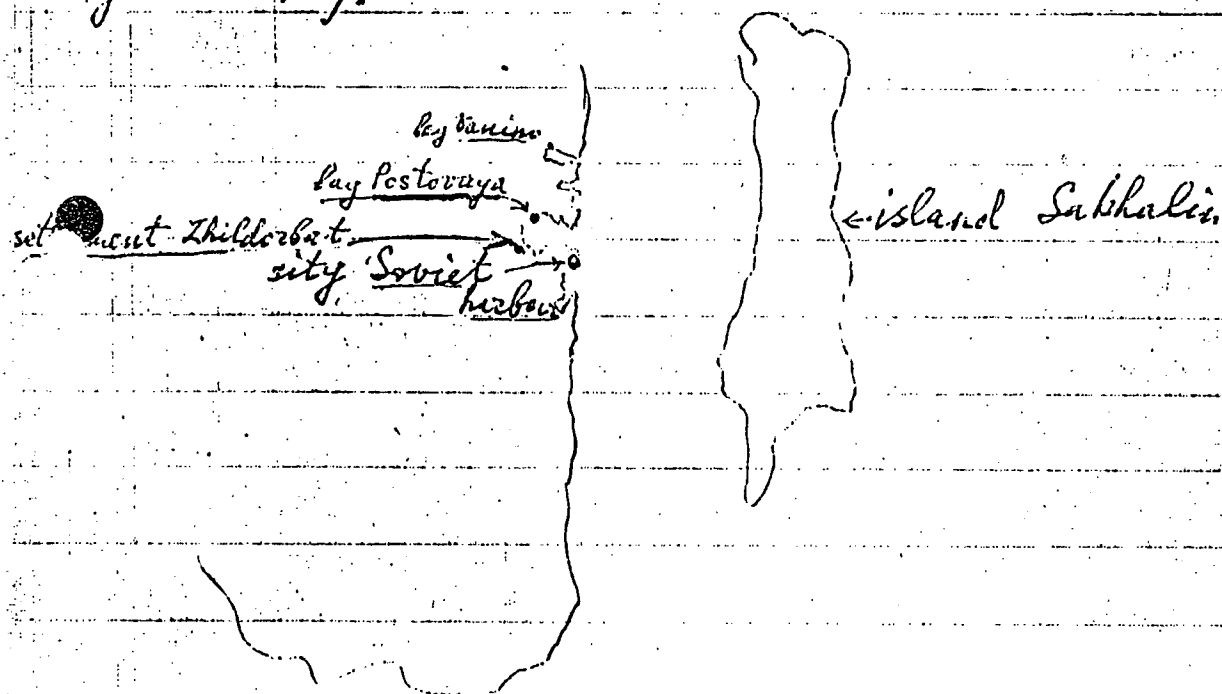 bay Vanino
bay Postovaya
Zhildorbat
sity Soviet
harbour
island Sakhalin